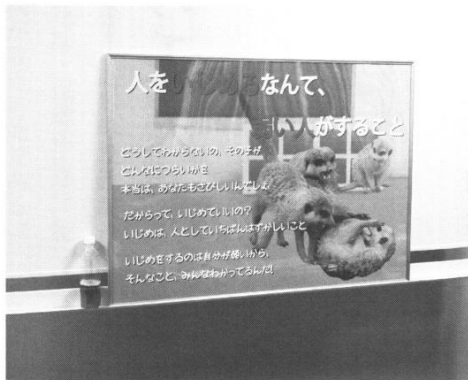 人をいじめるなんて、
い人がすること
どうしてわからないの、その子が
どんなにつらいかを
本当は、あなたもさびしいんでしょ
だからって、いじめていいの?
いじめは、人としていちばんはずかしいこと
いじめをするのは自分が弱いから、
そんなこと、みんなわかってるんだ!